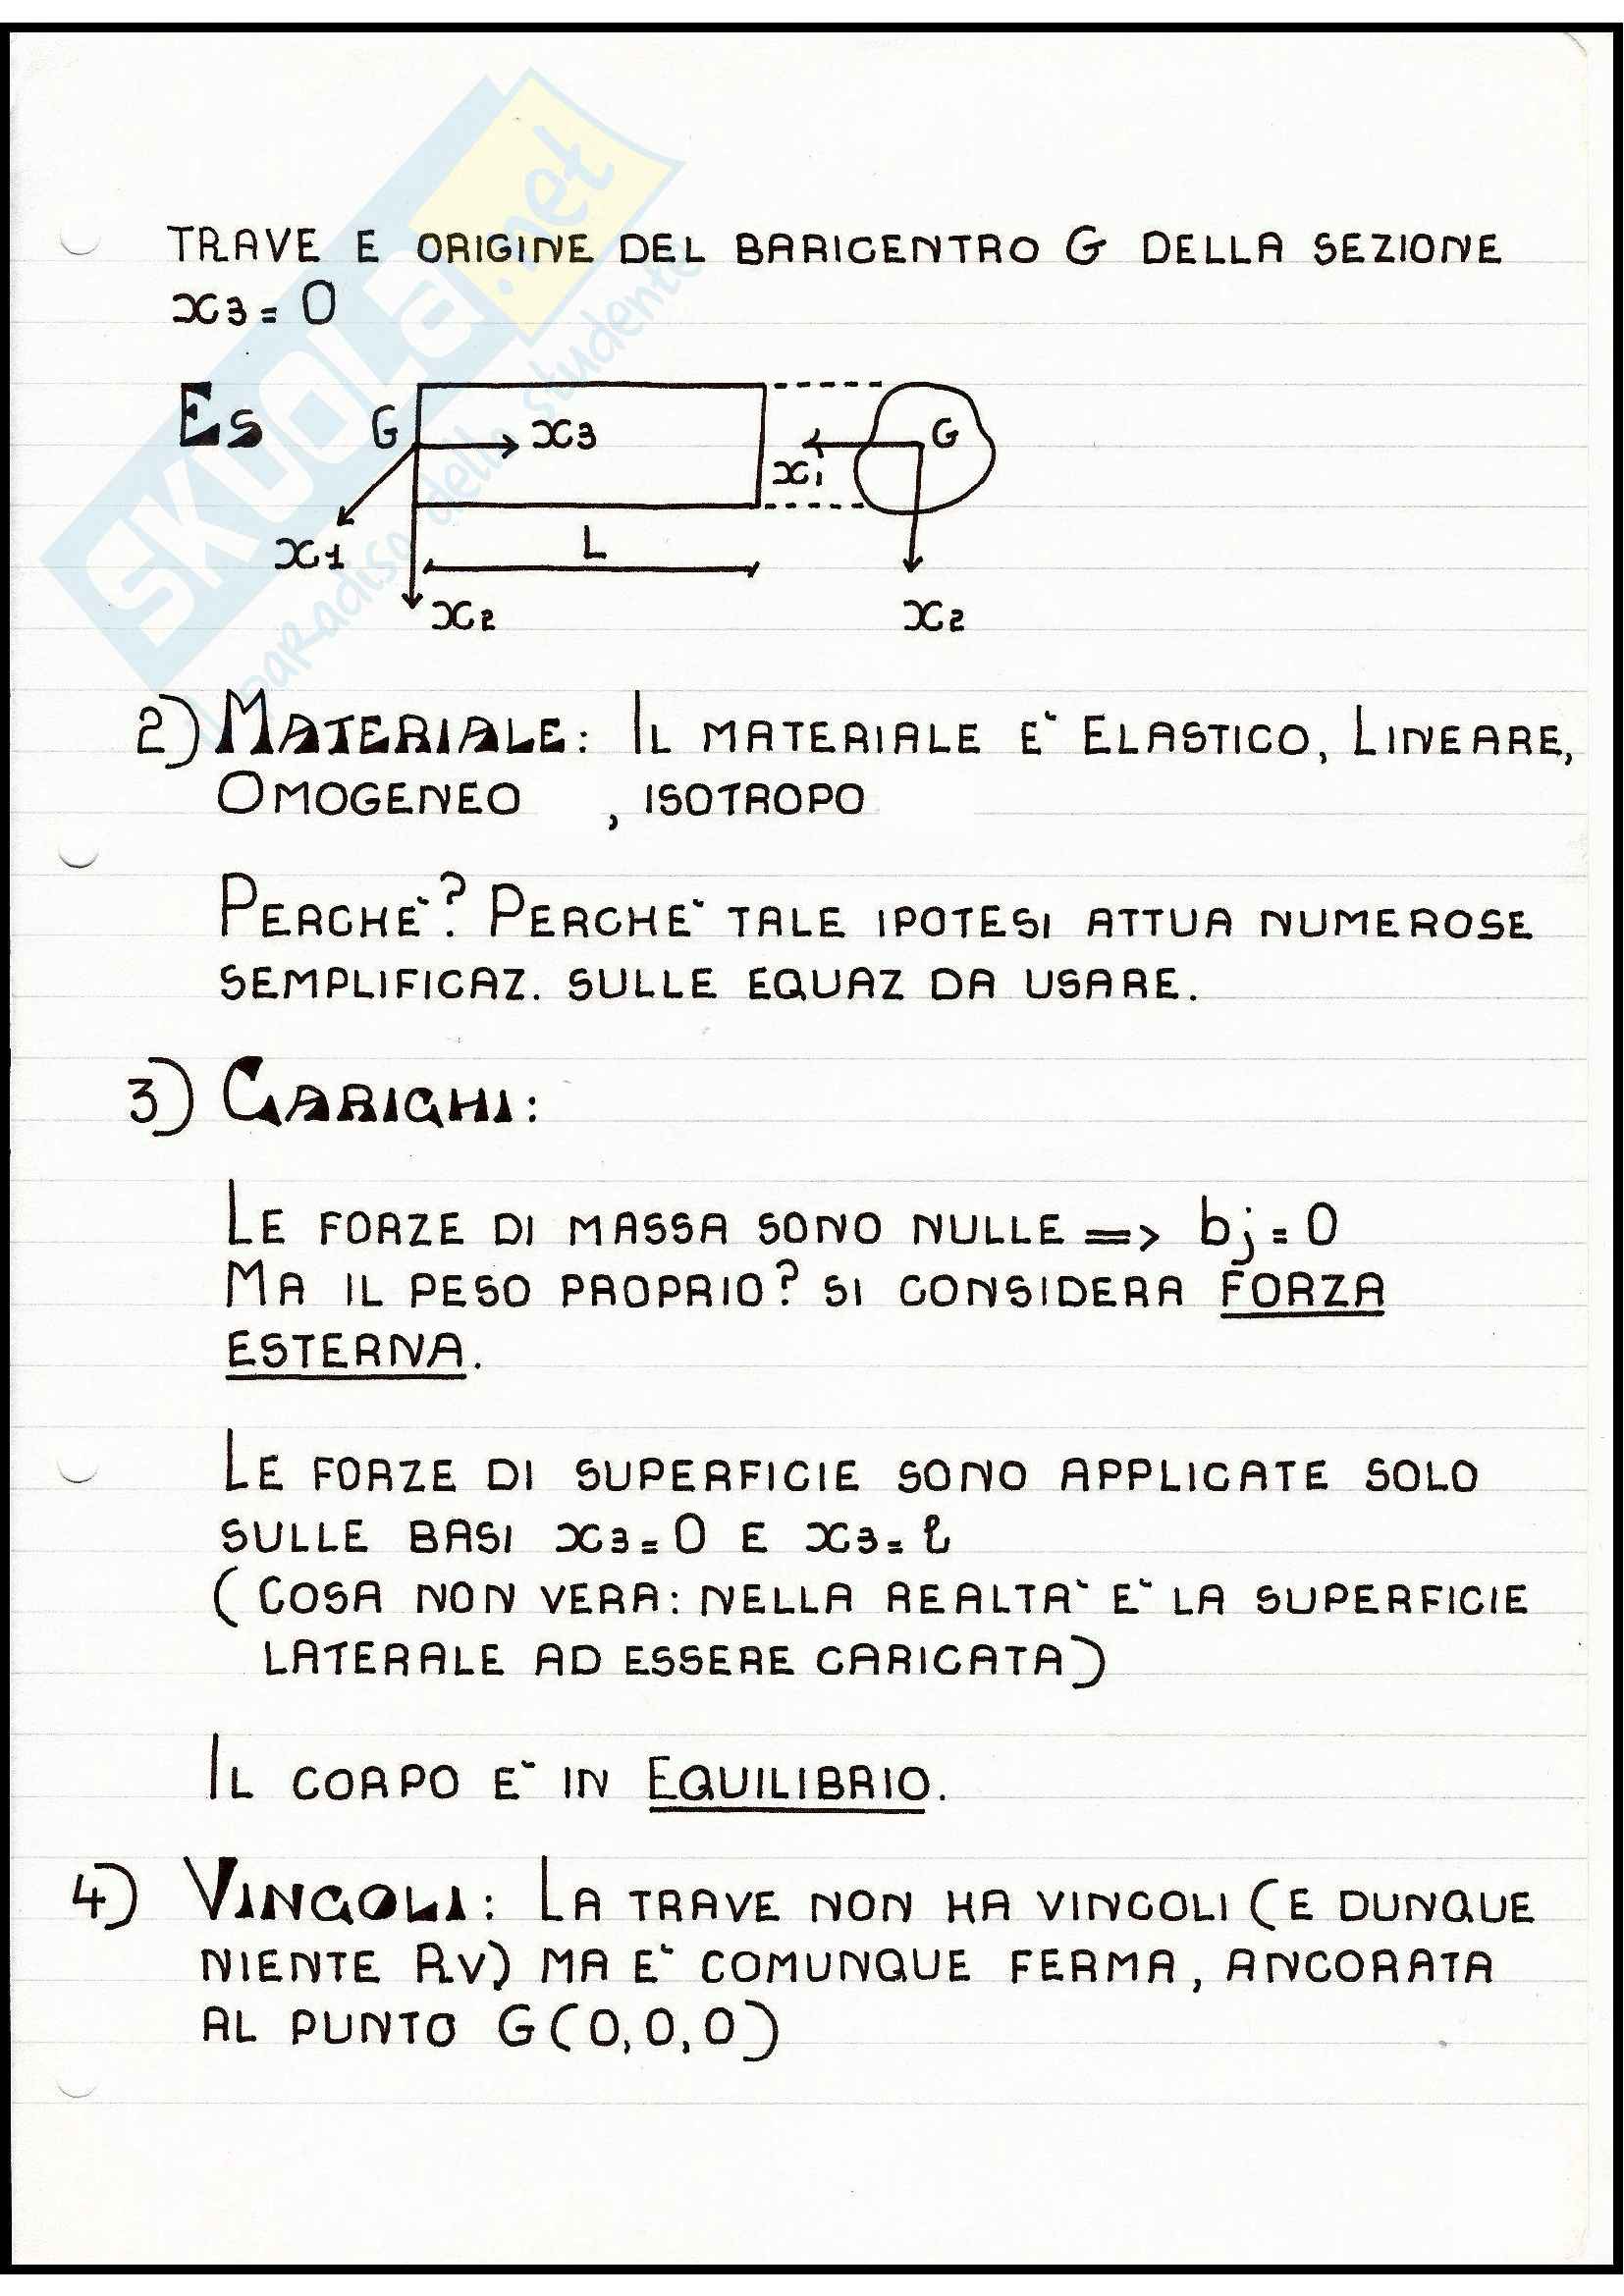 TRAVE E ORIGINE DEL BARICENTRO G DELLA SEZIONE
x3 = 0
Es
G
x3
x1
x2
L
G
x1
x2
2) MATERIALE: IL MATERIALE E` ELASTICO, LINEARE,
OMOGENEO , ISOTROPO
PERCHE`? PERCHE` TALE IPOTESI ATTUA NUMEROSE
SEMPLIFICAZ. SULLE EQUAZ DA USARE.
3) CARICHI:
LE FORZE DI MASSA SONO NULLE => bj = 0
MA IL PESO PROPRIO? SI CONSIDERA FORZA
ESTERNA.
LE FORZE DI SUPERFICIE SONO APPLICATE SOLO
SULLE BASI x3 = 0 E x3 = l
( COSA NON VERA: NELLA REALTA` E` LA SUPERFICIE
LATERALE AD ESSERE CARICATA)
IL CORPO E` IN EQUILIBRIO.
4) VINCOLI: LA TRAVE NON HA VINCOLI (E DUNQUE
NIENTE RV) MA E` COMUNQUE FERMA, ANCORATA
AL PUNTO G(0,0,0)
SKUOLA.net
paradiso dello studente